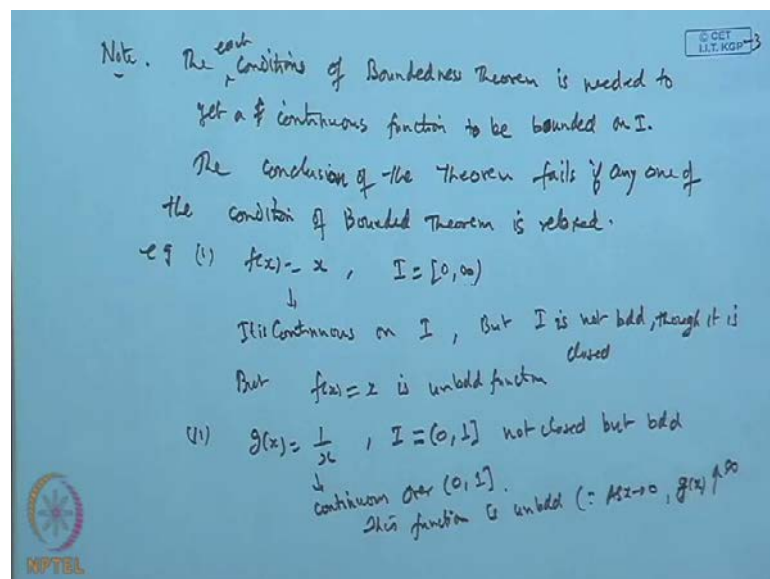 © CET
I.I.T. KGP -3
Note. The each conditions of Boundedness Theorem is needed to
get a continuous function to be bounded on I.
The conclusion of the Theorem fails if any one of
the condition of Bounded Theorem is relaxed.
eg (1) f(x) = x , I = [0, ∞)
↓
It is Continuous on I , But I is not bdd, though it is
closed
But f(x) = x is unbdd function
(11) g(x) = 1/x , I = (0, 1] not closed but bdd
↓
continuous over (0, 1].
This function is unbdd (∵ As x→0, g(x) ↑ ∞
NPTEL